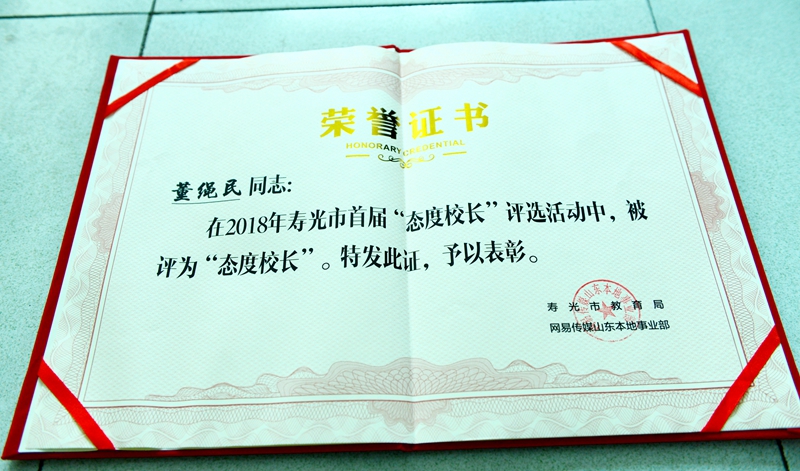 荣誉证书
HONORARY CREDENTIAL
董绳民同志：
在2018年寿光市首届“态度校长”评选活动中，被
评为“态度校长”。特发此证，予以表彰。
寿光市教育局
网易传媒山东本地事业部